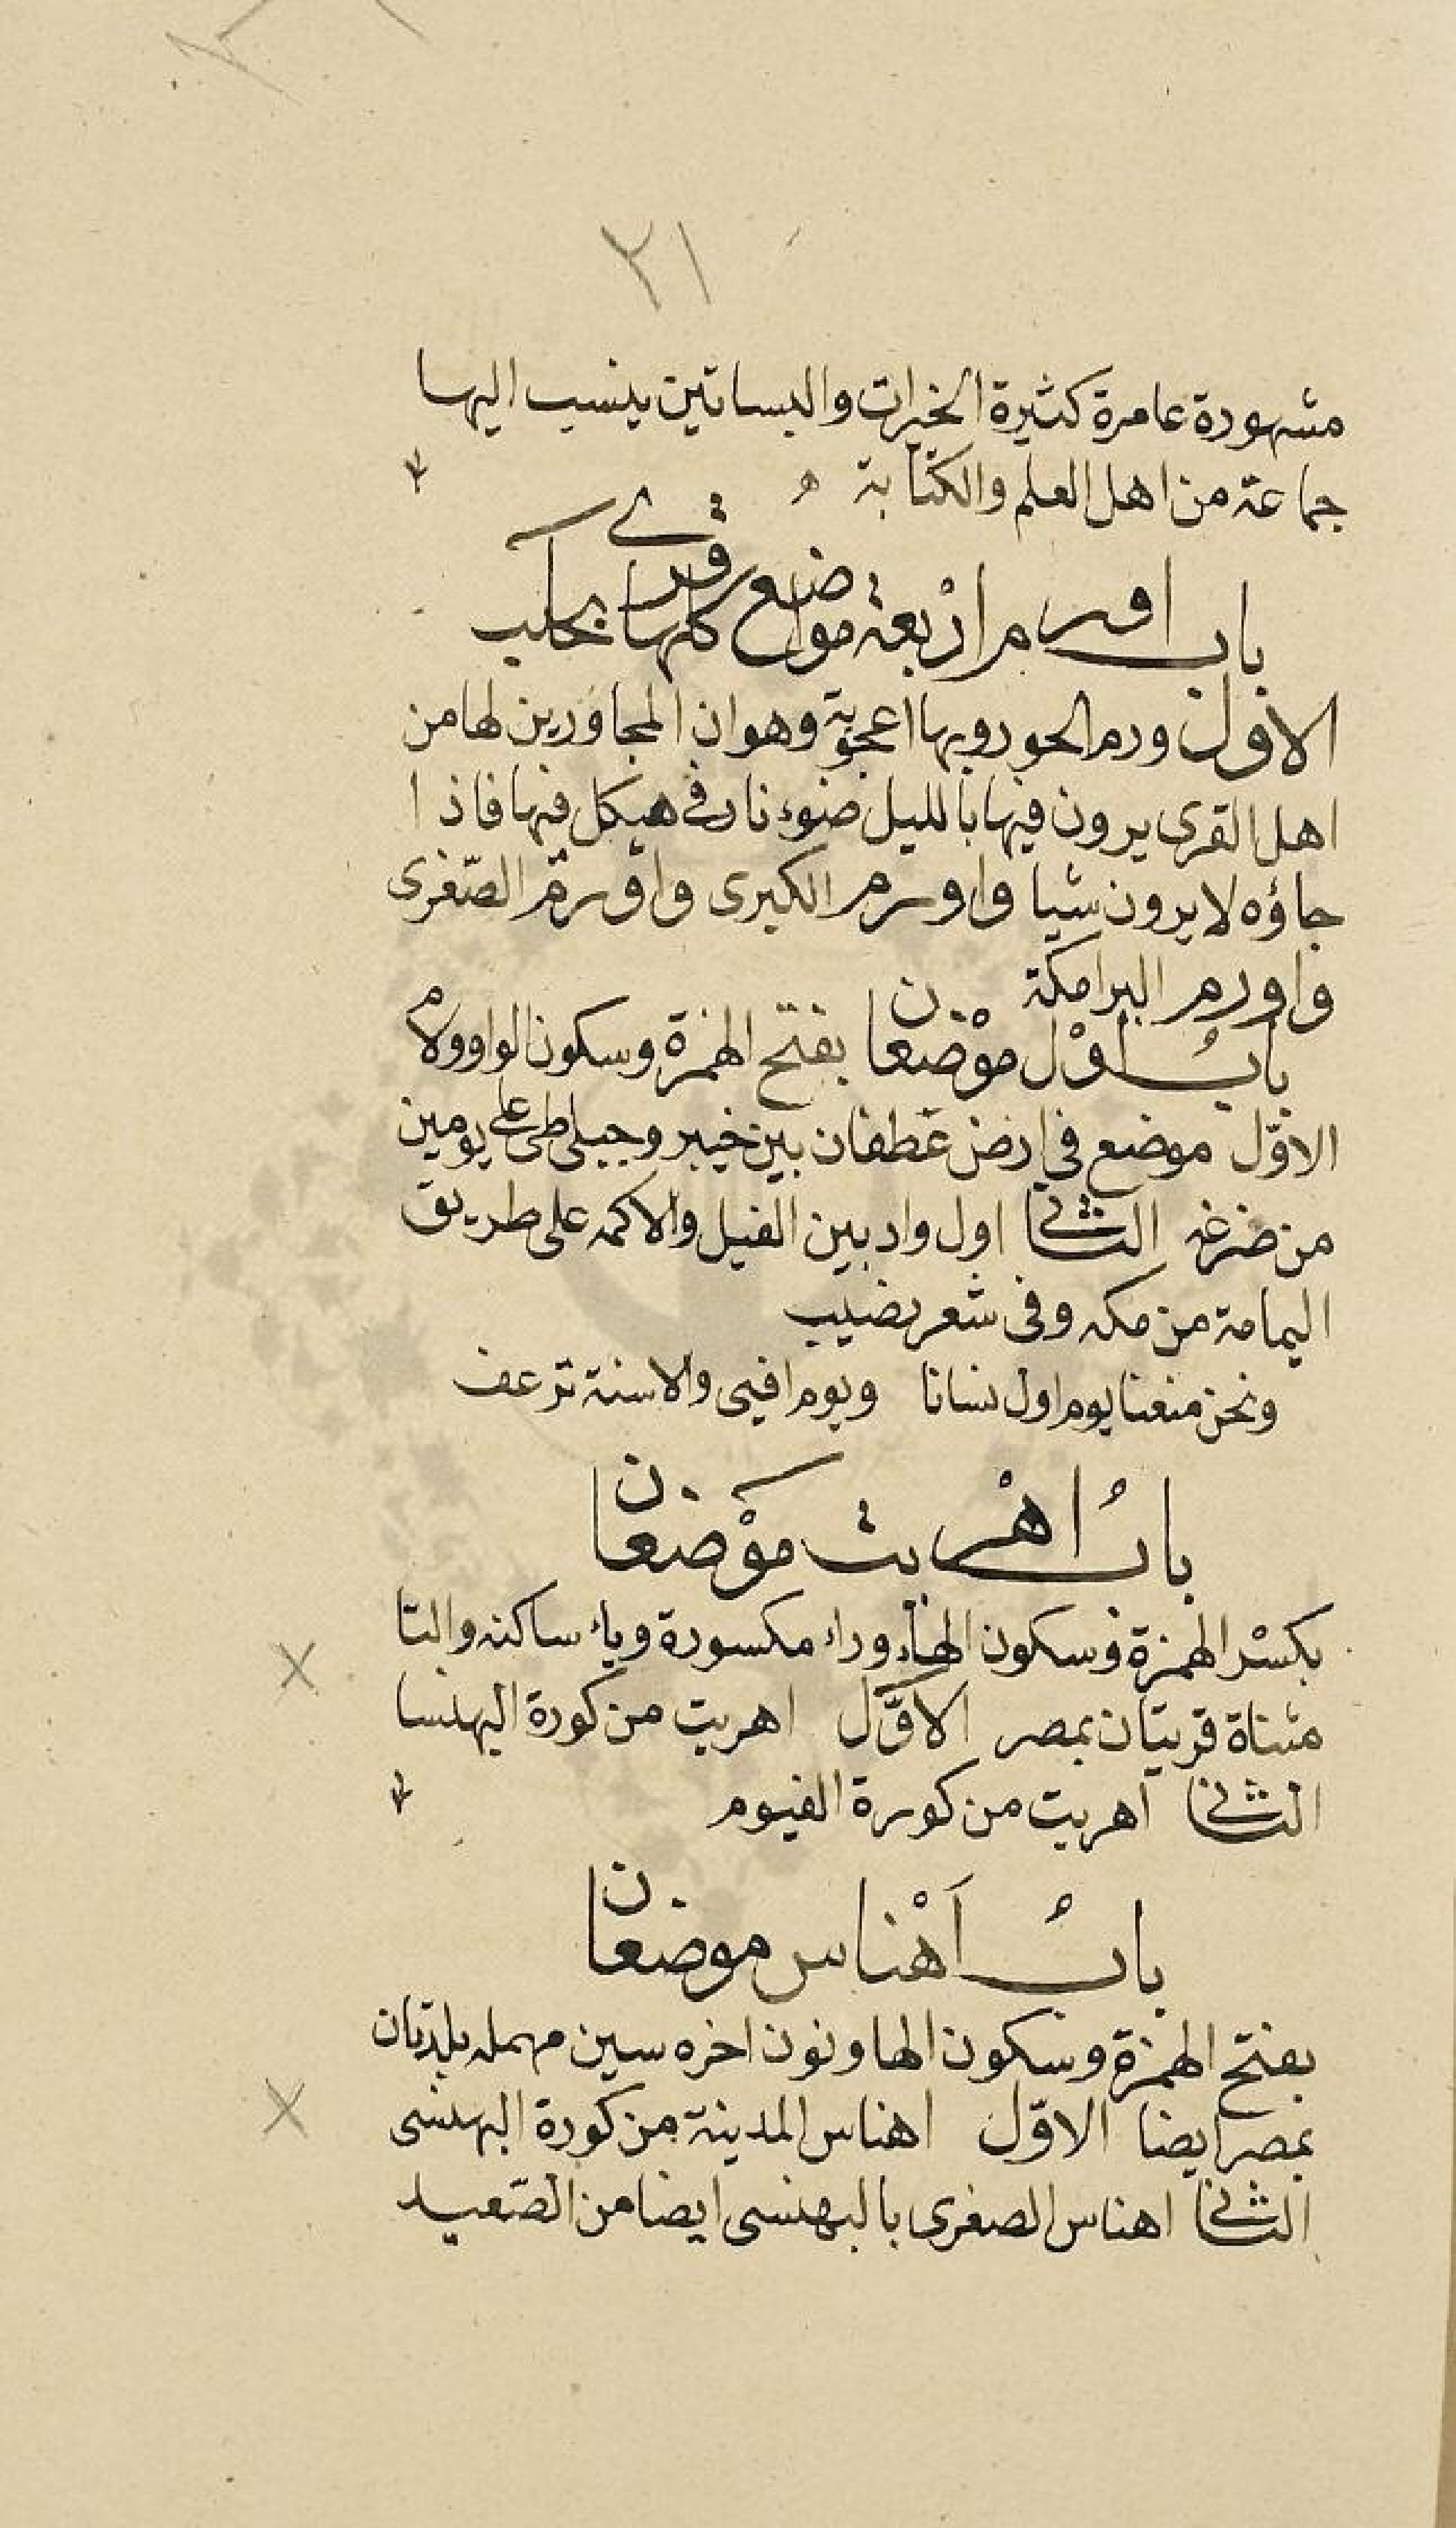 ٢١
مشهورة عامرة كثيرة الخيرات والبساتين ينسب اليها
جماعة من اهل العلم والكتابة ه
باب اورم اربعة مواضع قرى كلها بحلب
الاول ورم الحوز وبها اعجوبة وهو ان المجاورين لها من
اهل القرى يرون فيها بالليل ضوء نار في هيكل فيها فاذا
جاؤه لا يرون شيا واورم الكبرى واورم الصّغرى
واورم البرامكة
بابُ اوْل موْضعان بفتح الهمزة وسكون الواو ولام
الاوّل موضع في ارض غطفان بين خيبر وجبلي طي على يومين
من ضرغد الثاني اول واد بين الغيل والاكمه على طريق
اليمامة من مكه وفي شعر نصيب
ونحن منعنا يوم اول نسانا ويوم افيى والاسنة ترعف
بابُ اهْريت موْضعان
بكسْر الهمزة وسكون الهاء وراء مكسورة وياء ساكنه والتا
مثناة قريتان بمصر الاوّل اهريت من كورة البهنسا
الثاني اهريت من كورة الفيوم
بابُ اَهْناس موضعان
بفتح الهمزة وسكون الها ونون اخره سين مهمله بلدتان
بمصر ايضا الاوّل اهناس المدينة من كورة البهنسى
الثاني اهناس الصغرى بالبهنسى ايضا من الصّعيد